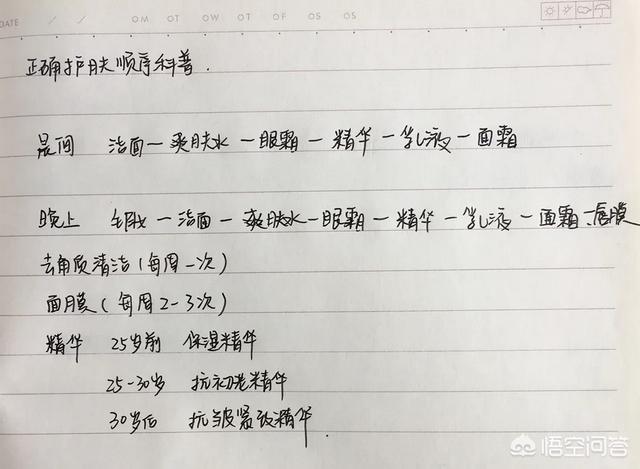 DATE / / OM OT OW OT OF OS OS
正确护肤顺序科普.
晨间 洁面一爽肤水一眼霜一精华一乳液一面霜
晚上 卸妆一洁面一爽肤水一眼霜一精华一乳液一面霜一唇膜
去角质清洁(每周一次)
面膜(每周2-3次)
精华 25岁前 保湿精华
25-30岁 抗初老精华
30岁后 抗皱紧致精华
悟空问答